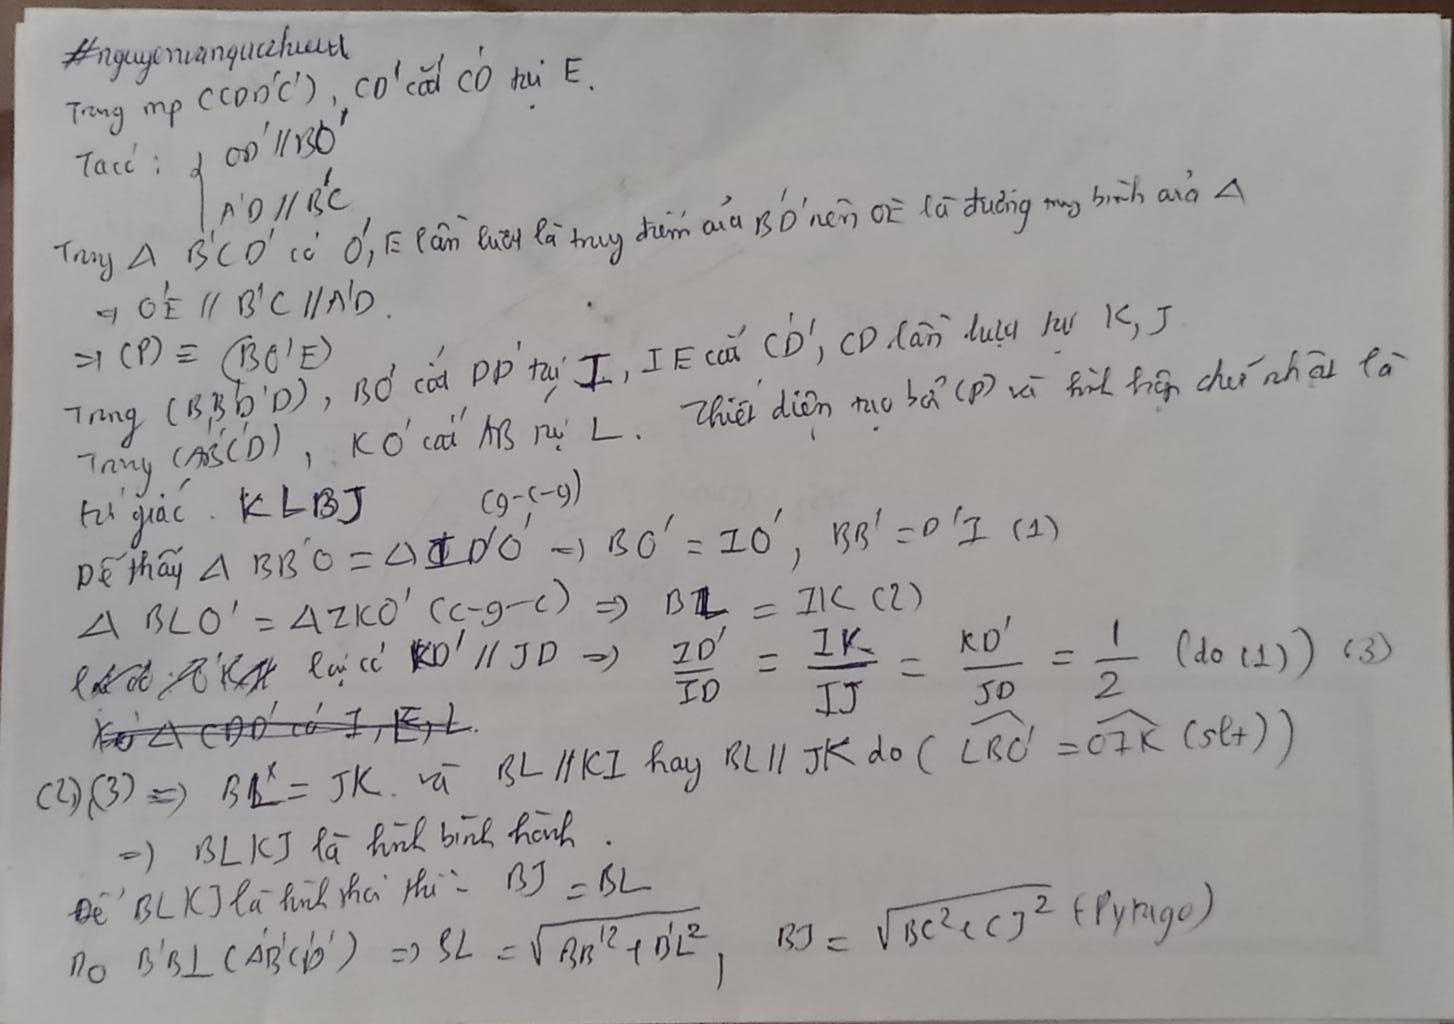 #nguyenvanquocthuan
Trong mp (CDD'C'), CD' cắt C'D tại E.
Ta có: { OD' // BO'
A'D // B'C
Trong Δ B'CD' có O', E lần lượt là trung điểm của B'D' nên O'E là đường trung bình của Δ
⇒ O'E // B'C // A'D.
⇒ (P) ≡ (BO'E)
Trong (BB'D'D), BO' cắt DD' tại I, IE cắt C'D', CD lần lượt tại K, J
Trong (A'B'C'D'), KO' cắt A'B' tại L. Thiết diện tạo bởi (P) và hình hộp chữ nhật là
tứ giác KLBJ (g-c-g)
Dễ thấy Δ BB'O' = Δ ID'O' ⇒ BO' = IO', BB' = D'I (1)
Δ BLO' = Δ IKO' (c-g-c) ⇒ BL = IK (2)
lại có KD' // JD ⇒ ID'/ID = IK/IJ = KD'/JD = 1/2 (do (1)) (3)
Xét Δ CDD' có I, E, L.
(2),(3) ⇒ BL = JK. và BL // KI hay BL // JK do (LBO' = O'IK (slt))
⇒ BLKJ là hình bình hành.
Để BLKJ là hình thoi thì: BJ = BL
Do B'B⊥(A'B'C'D') ⇒ BL = √(BB'² + B'L²), BJ = √(BC² + CJ²) (Pytago)